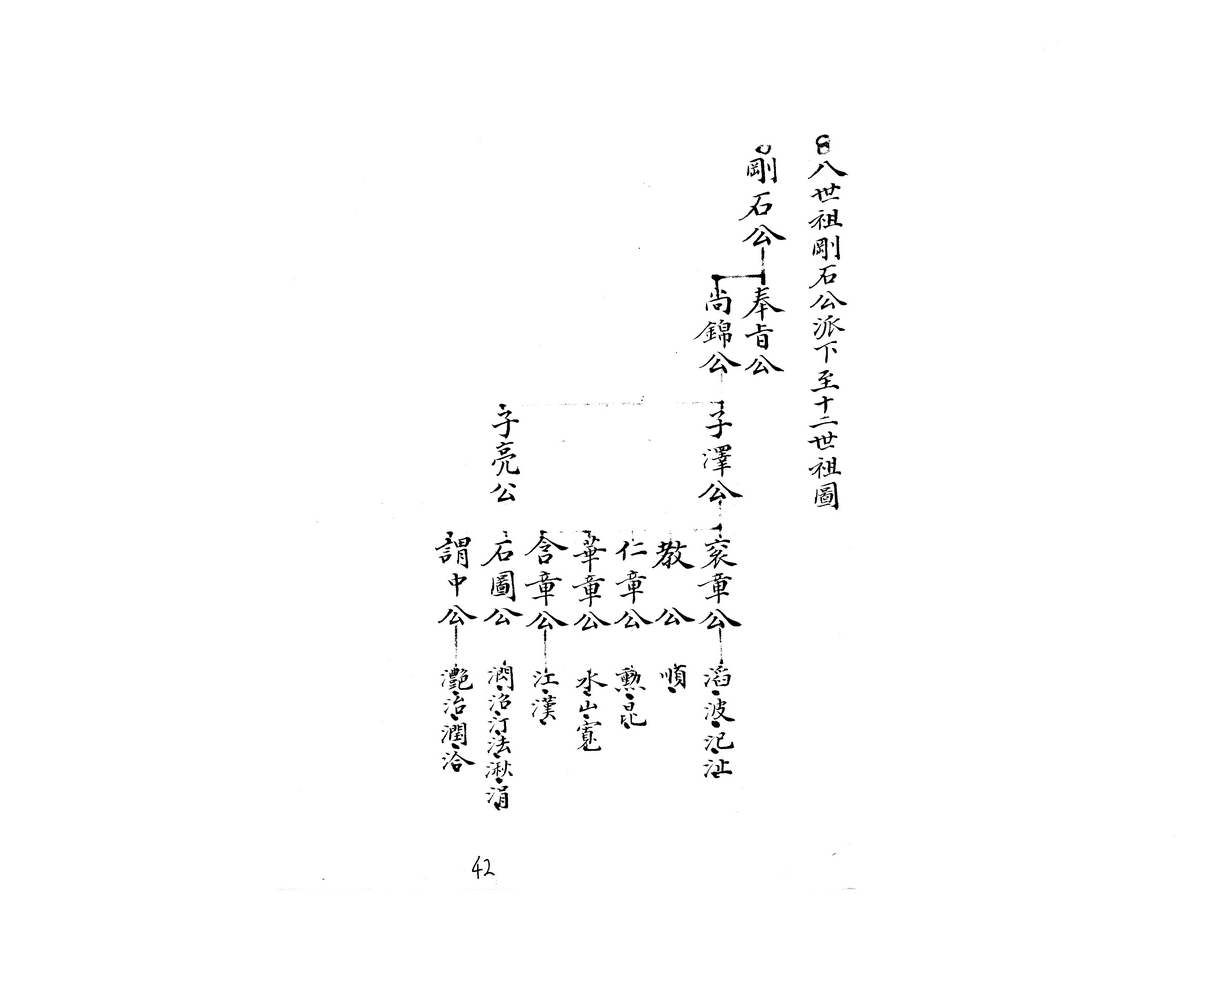 八世祖剛石公派下至十二世祖圖
剛石公
奉旨公
尚錦公
子澤公
子亮公
袞章公
教公
仁章公
華章公
含章公
石圖公
謂中公
滔波汜沚
順
勲昆
水山寬
江漢
潤治汀法湫涓
灧治潤洽
42